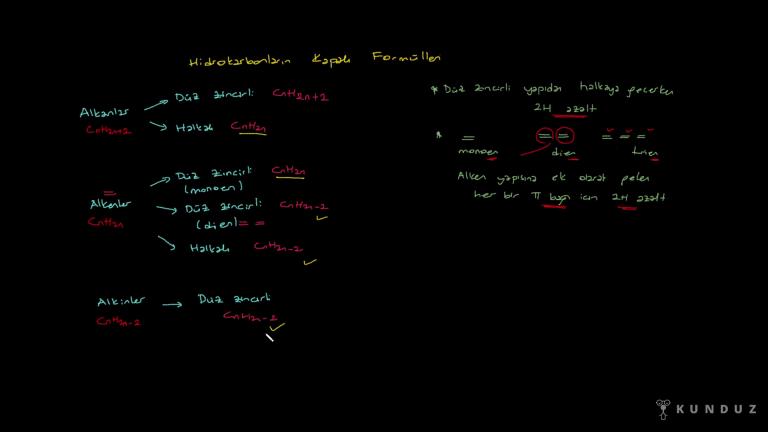 Hidrokarbonların Kapalı Formülleri
Alkanlar
CnH2n+2
Düz zincirli CnH2n+2
Halkalı CnH2n
=
Alkenler
CnH2n
Düz zincirli CnH2n
(monoen)
Düz zincirli CnH2n-2
(dien) = =
Halkalı CnH2n-2
Alkinler
CnH2n-2
Düz zincirli
CnH2n-2
* Düz zincirli yapıdan halkaya geçerken
2H azalt
* = = = = = =
monoen dien trien
Alken yapısına ek olarak gelen
her bir π bağı için 2H azalt
KUNDUZ